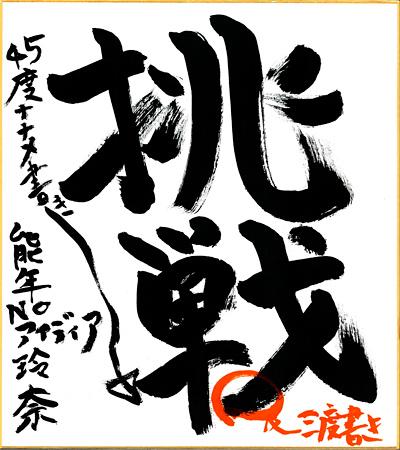 挑戦
45度ナナメ書き
能年NOアイディア玲奈
度書き